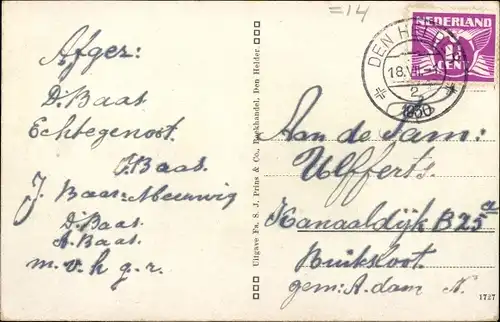 =14
Afgez:
D. Baas
Echtegenoot.
J. Baas.
J. Baas-Meeuwig
D. Baas
A. Baas
m.v.h.g.r.
Uitgave Fa. S. J. Prins & Co., Boekhandel, Den Helder.
NEDERLAND
2½
CENT
DEN HELDER
18.VII
2
1930
Aan de Fam:
Ulfferts
Kanaaldijk B25a
Buiksloot
gem: A.dam N.
1727